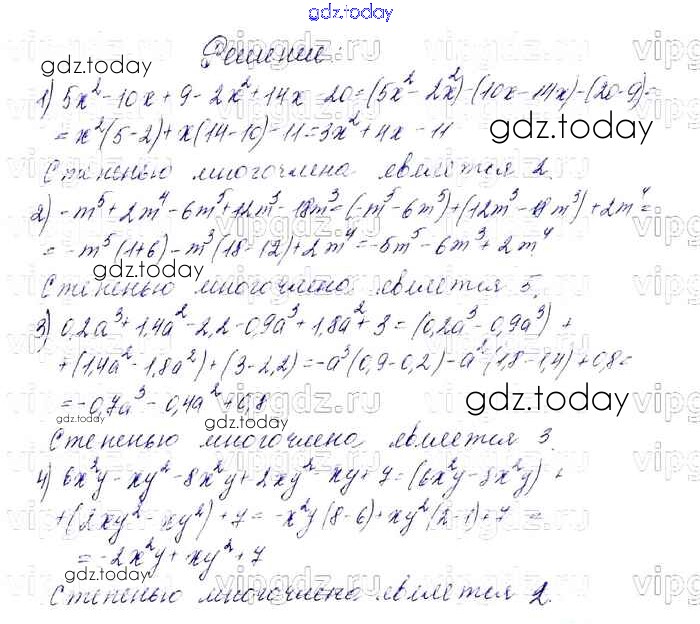 gdz.today
Решение:
gdz.today
1) 5x²-10x+9-2x²+14x-20=(5x²-2x²)-(10x-14x)-(20-9)=
=x²(5-2)+x(14-10)-11=3x²+4x-11
gdz.today
Степенью многочлена является 2.
2) -m⁵+2m⁴-6m⁵+12m³-18m³=(-m⁵-6m⁵)+(12m³-18m³)+2m⁴=
=-m⁵(1+6)-m³(18-12)+2m⁴=-5m⁵-6m³+2m⁴
gdz.today
Степенью многочлена является 5.
3) 0,2a³+1,4a²-2,2-0,9a³+1,8a²+3=(0,2a³-0,9a³)+
+(1,4a²-1,8a²)+(3-2,2)=-a³(0,9-0,2)-a²(1,8-1,4)+0,8=
=-0,7a³-0,4a²+0,8
gdz.today
gdz.today
Степенью многочлена является 3.
4) 6x²y-xy²-8x²y+2xy²-xy+7=(6x²y-8x²y)+
+(2xy²-xy²)+7=-x²y(8-6)+xy²(2-1)+7=
=-2x²y+xy²+7
gdz.today
gdz.today
Степенью многочлена является 2.